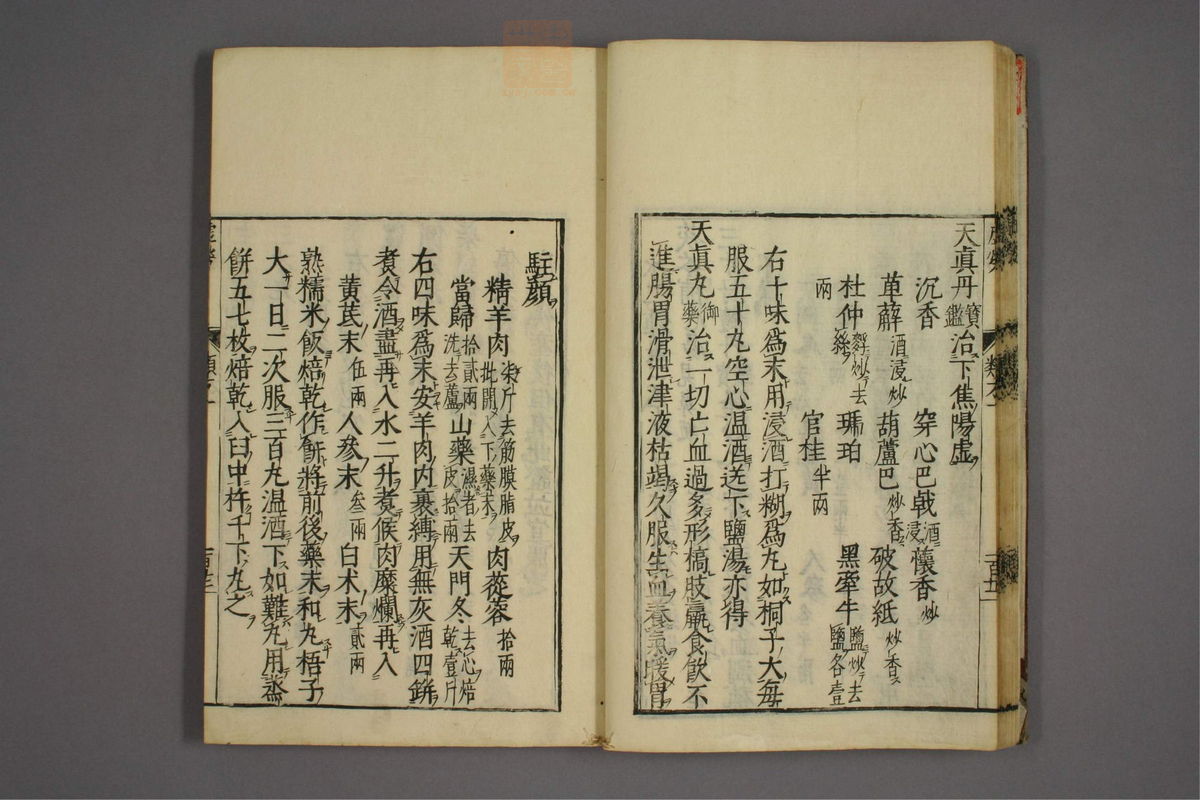 天眞丹寶鑑治下焦陽虛
沉香 穿心巴戟酒浸 懷香炒
萆薢酒浸炒 葫蘆巴炒香 破故紙炒香
杜仲麸炒去絲 琥珀 黑牽牛鹽炒去鹽各壹
兩 官桂半兩
右十味爲末用浸酒打糊爲丸如桐子大每
服五十丸空心温酒送下鹽湯亦得
天眞丸御藥治一切亡血過多形槁肢羸食飲不
進腸胃滑泄津液枯竭久服生血養氣暖胃
駐顏
精羊肉柒斤去筋膜脂皮批開入下藥末 肉蓯蓉拾兩
當歸拾貳兩洗去蘆 山藥濕者去皮拾兩 天門冬去心焙乾壹斤
右四味爲末安羊肉内裹縛用無灰酒四缾
煑令酒盡再入水二升煑候肉糜爛再入
黄茋末伍兩 人參末叁兩 白术末貳兩
熟糯米飯焙乾作餅將前後藥末和丸梧子
大一日二次服三百丸温酒下如難丸用蒸
餅五七枚焙乾入臼中杵千下丸之